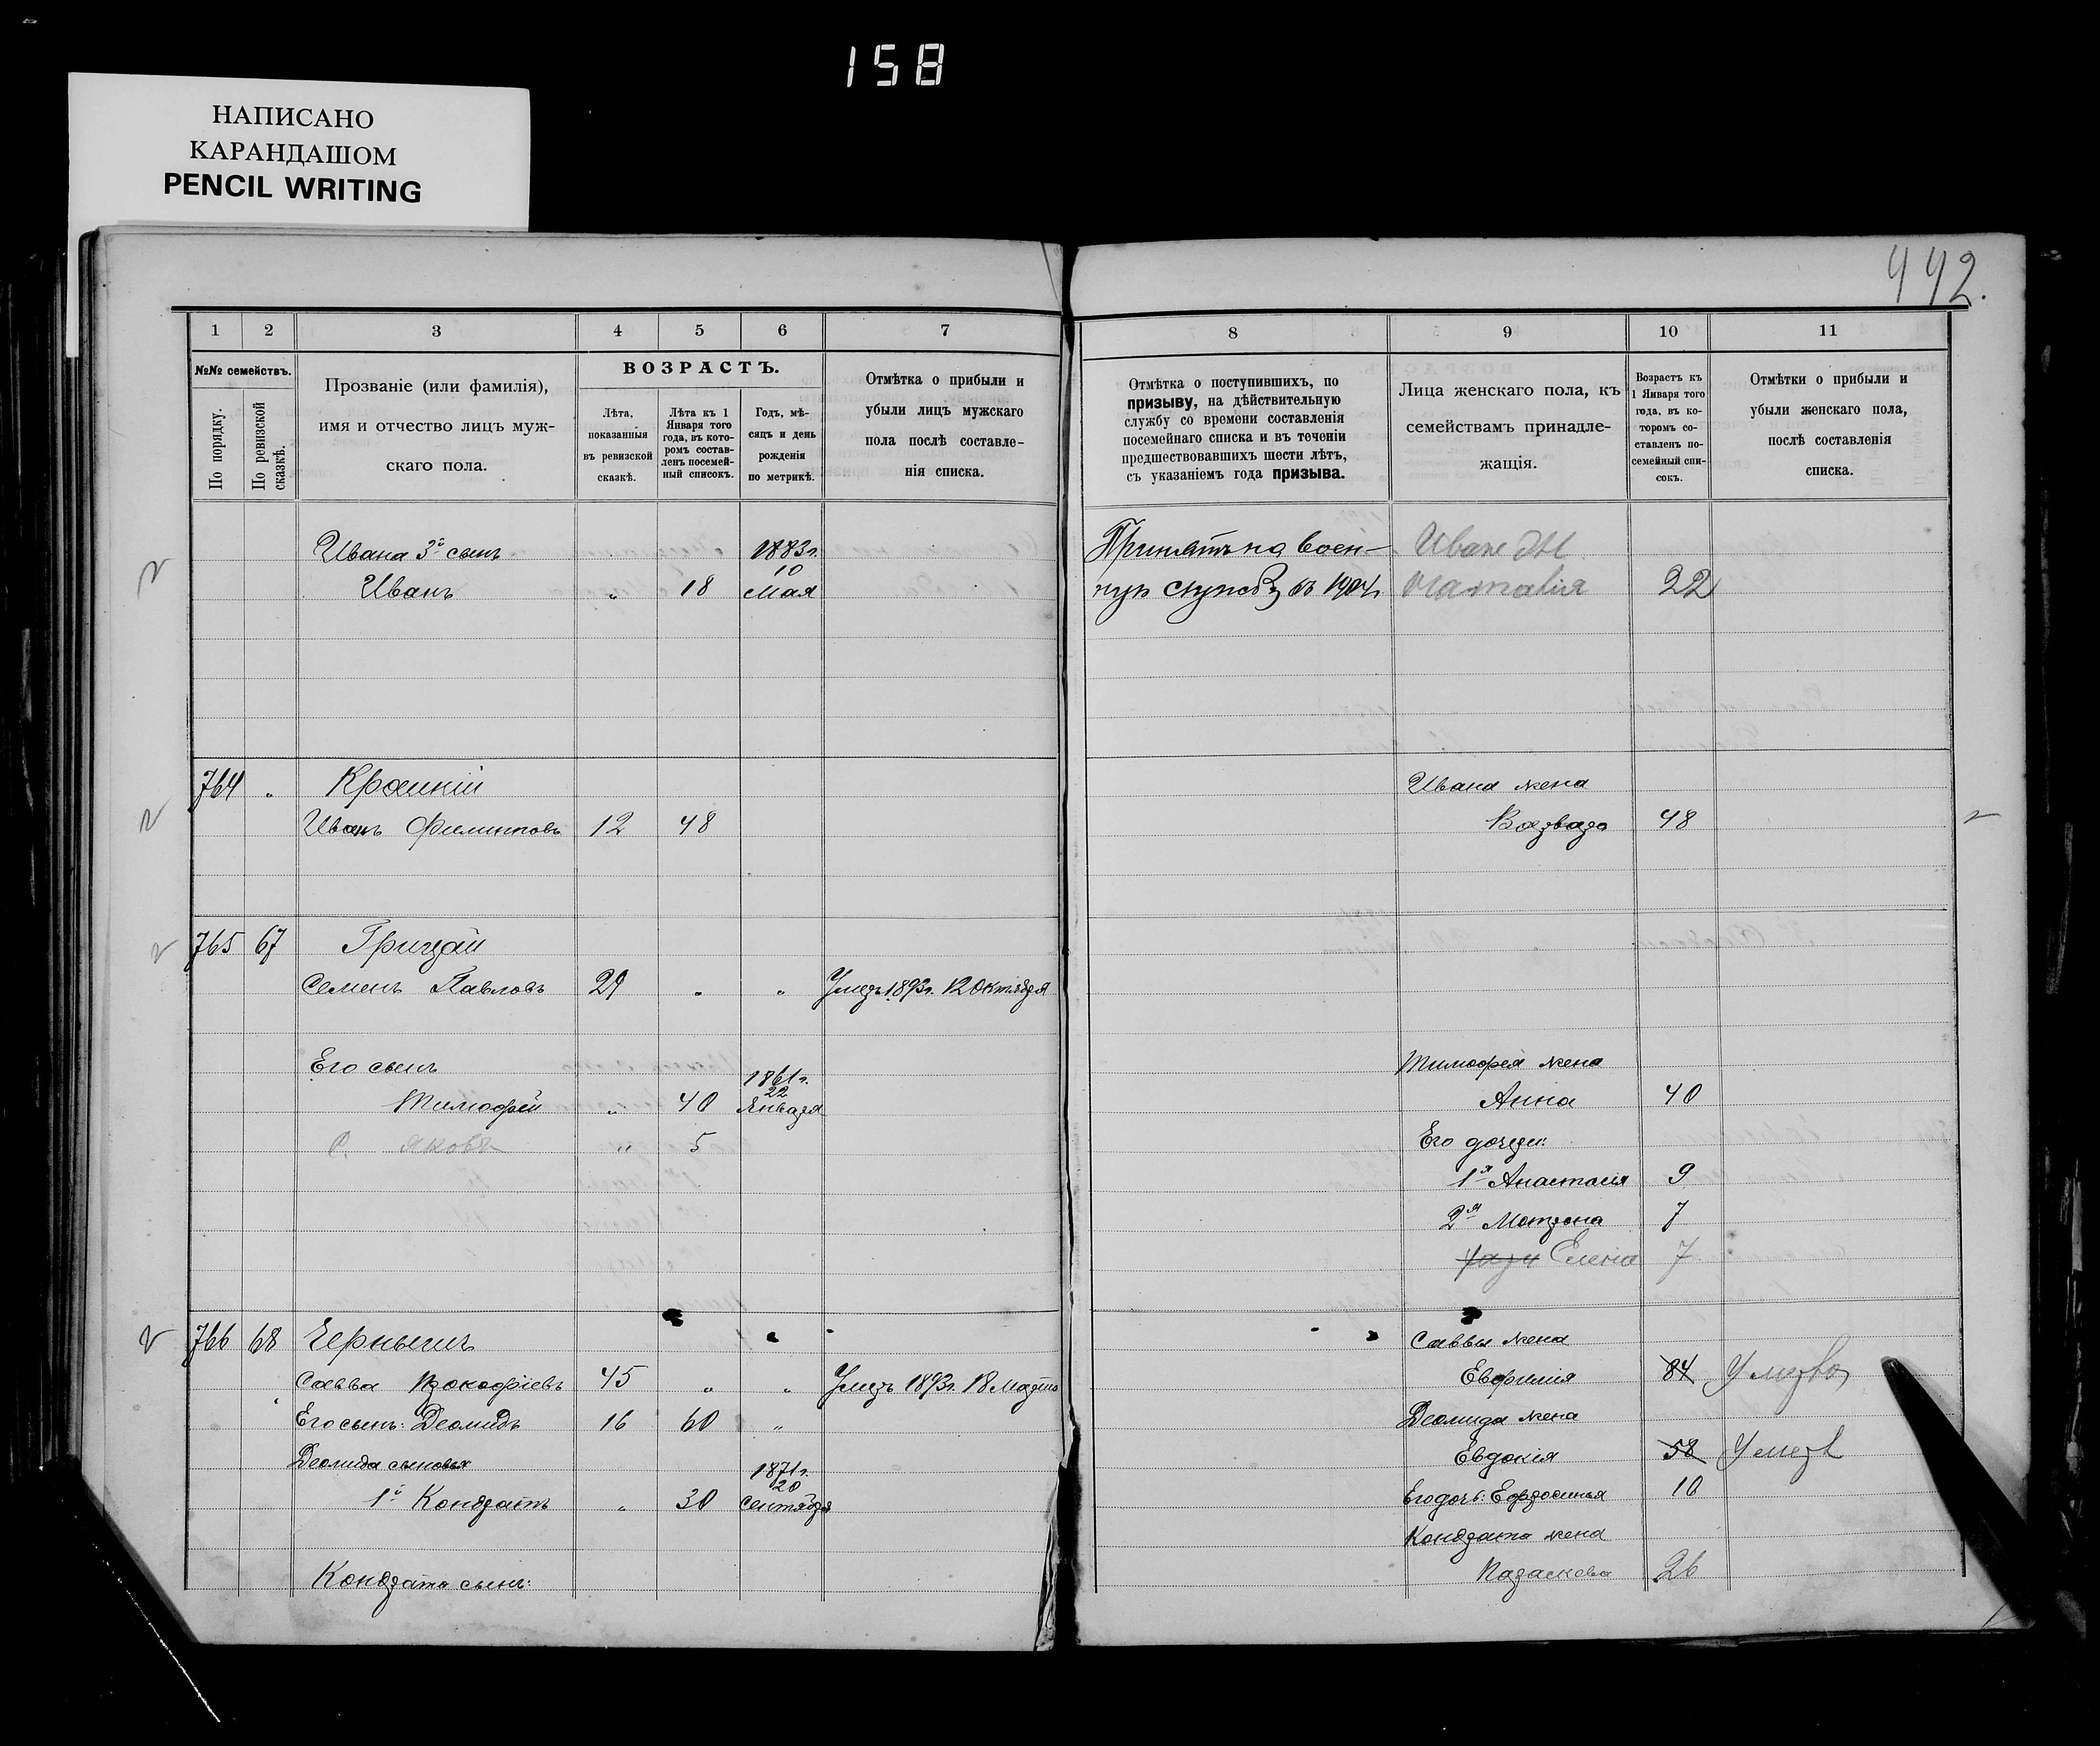 158
НАПИСАНО
КАРАНДАШОМ
PENCIL WRITING
442.
1 2 3 4 5 6 7
№№ семействъ.
По порядку.
По ревизской сказкѣ.
Прозваніе (или фамилія),
имя и отчество лицъ муж-
скаго пола.
ВОЗРАСТЪ.
Лѣта,
показанныя
въ ревизской
сказкѣ.
Лѣта къ 1
Января того
года, въ кото-
ромъ состав-
ленъ посемей-
ный списокъ.
Годъ, мѣ-
сяцъ и день
рожденія
по метрикѣ.
Отмѣтка о прибыли и
убыли лицъ мужскаго
пола послѣ составле-
нія списка.
Ивана 3й сынъ 1883г.
10
Иванъ " 18 Мая
764 " Кроткій
Иванъ Филиповъ 12 48
765 67 Грицай
Семенъ Павловъ 29 " " Умеръ 1893г. 12 Октября
Его сынъ 1861г.
22
Тимофей " 40 Января
С. Яковъ " 5
766 68 Чернышъ
Савва Прокофіевъ 45 " " Умеръ 1893г. 18 Марта
Его сынъ: Деомидъ 16 60 "
Деомида сыновья 1871г.
20
1й Кондратъ " 30 Сентября
Кондрата сынъ:
8 9 10 11
Отмѣтка о поступившихъ, по
призыву, на дѣйствительную
службу со времени составленія
посемейнаго списка и въ теченіи
предшествовавшихъ шести лѣтъ,
съ указаніемъ года призыва.
Лица женскаго пола, къ
семействамъ принадле-
жащія.
Возрастъ къ
1 Января того
года, въ ко-
торомъ со-
ставленъ по-
семейный спи-
сокъ.
Отмѣтки о прибыли и
убыли женскаго пола,
послѣ составленія
списка.
Принятъ на воен-
ную службу въ 1904г.
Наталія 22
Ивана жена
Варвара 48
Тимофея жена
Анна 40
Его дочери:
1я Анастасія 9
2я Матрона 7
Елена 7
Саввы жена
Евфимія 84 Умерла
Деомида жена
Евдокія 58 Умерл
Его дочь: Ефросинья 10
Кондрата жена
Параскева 26